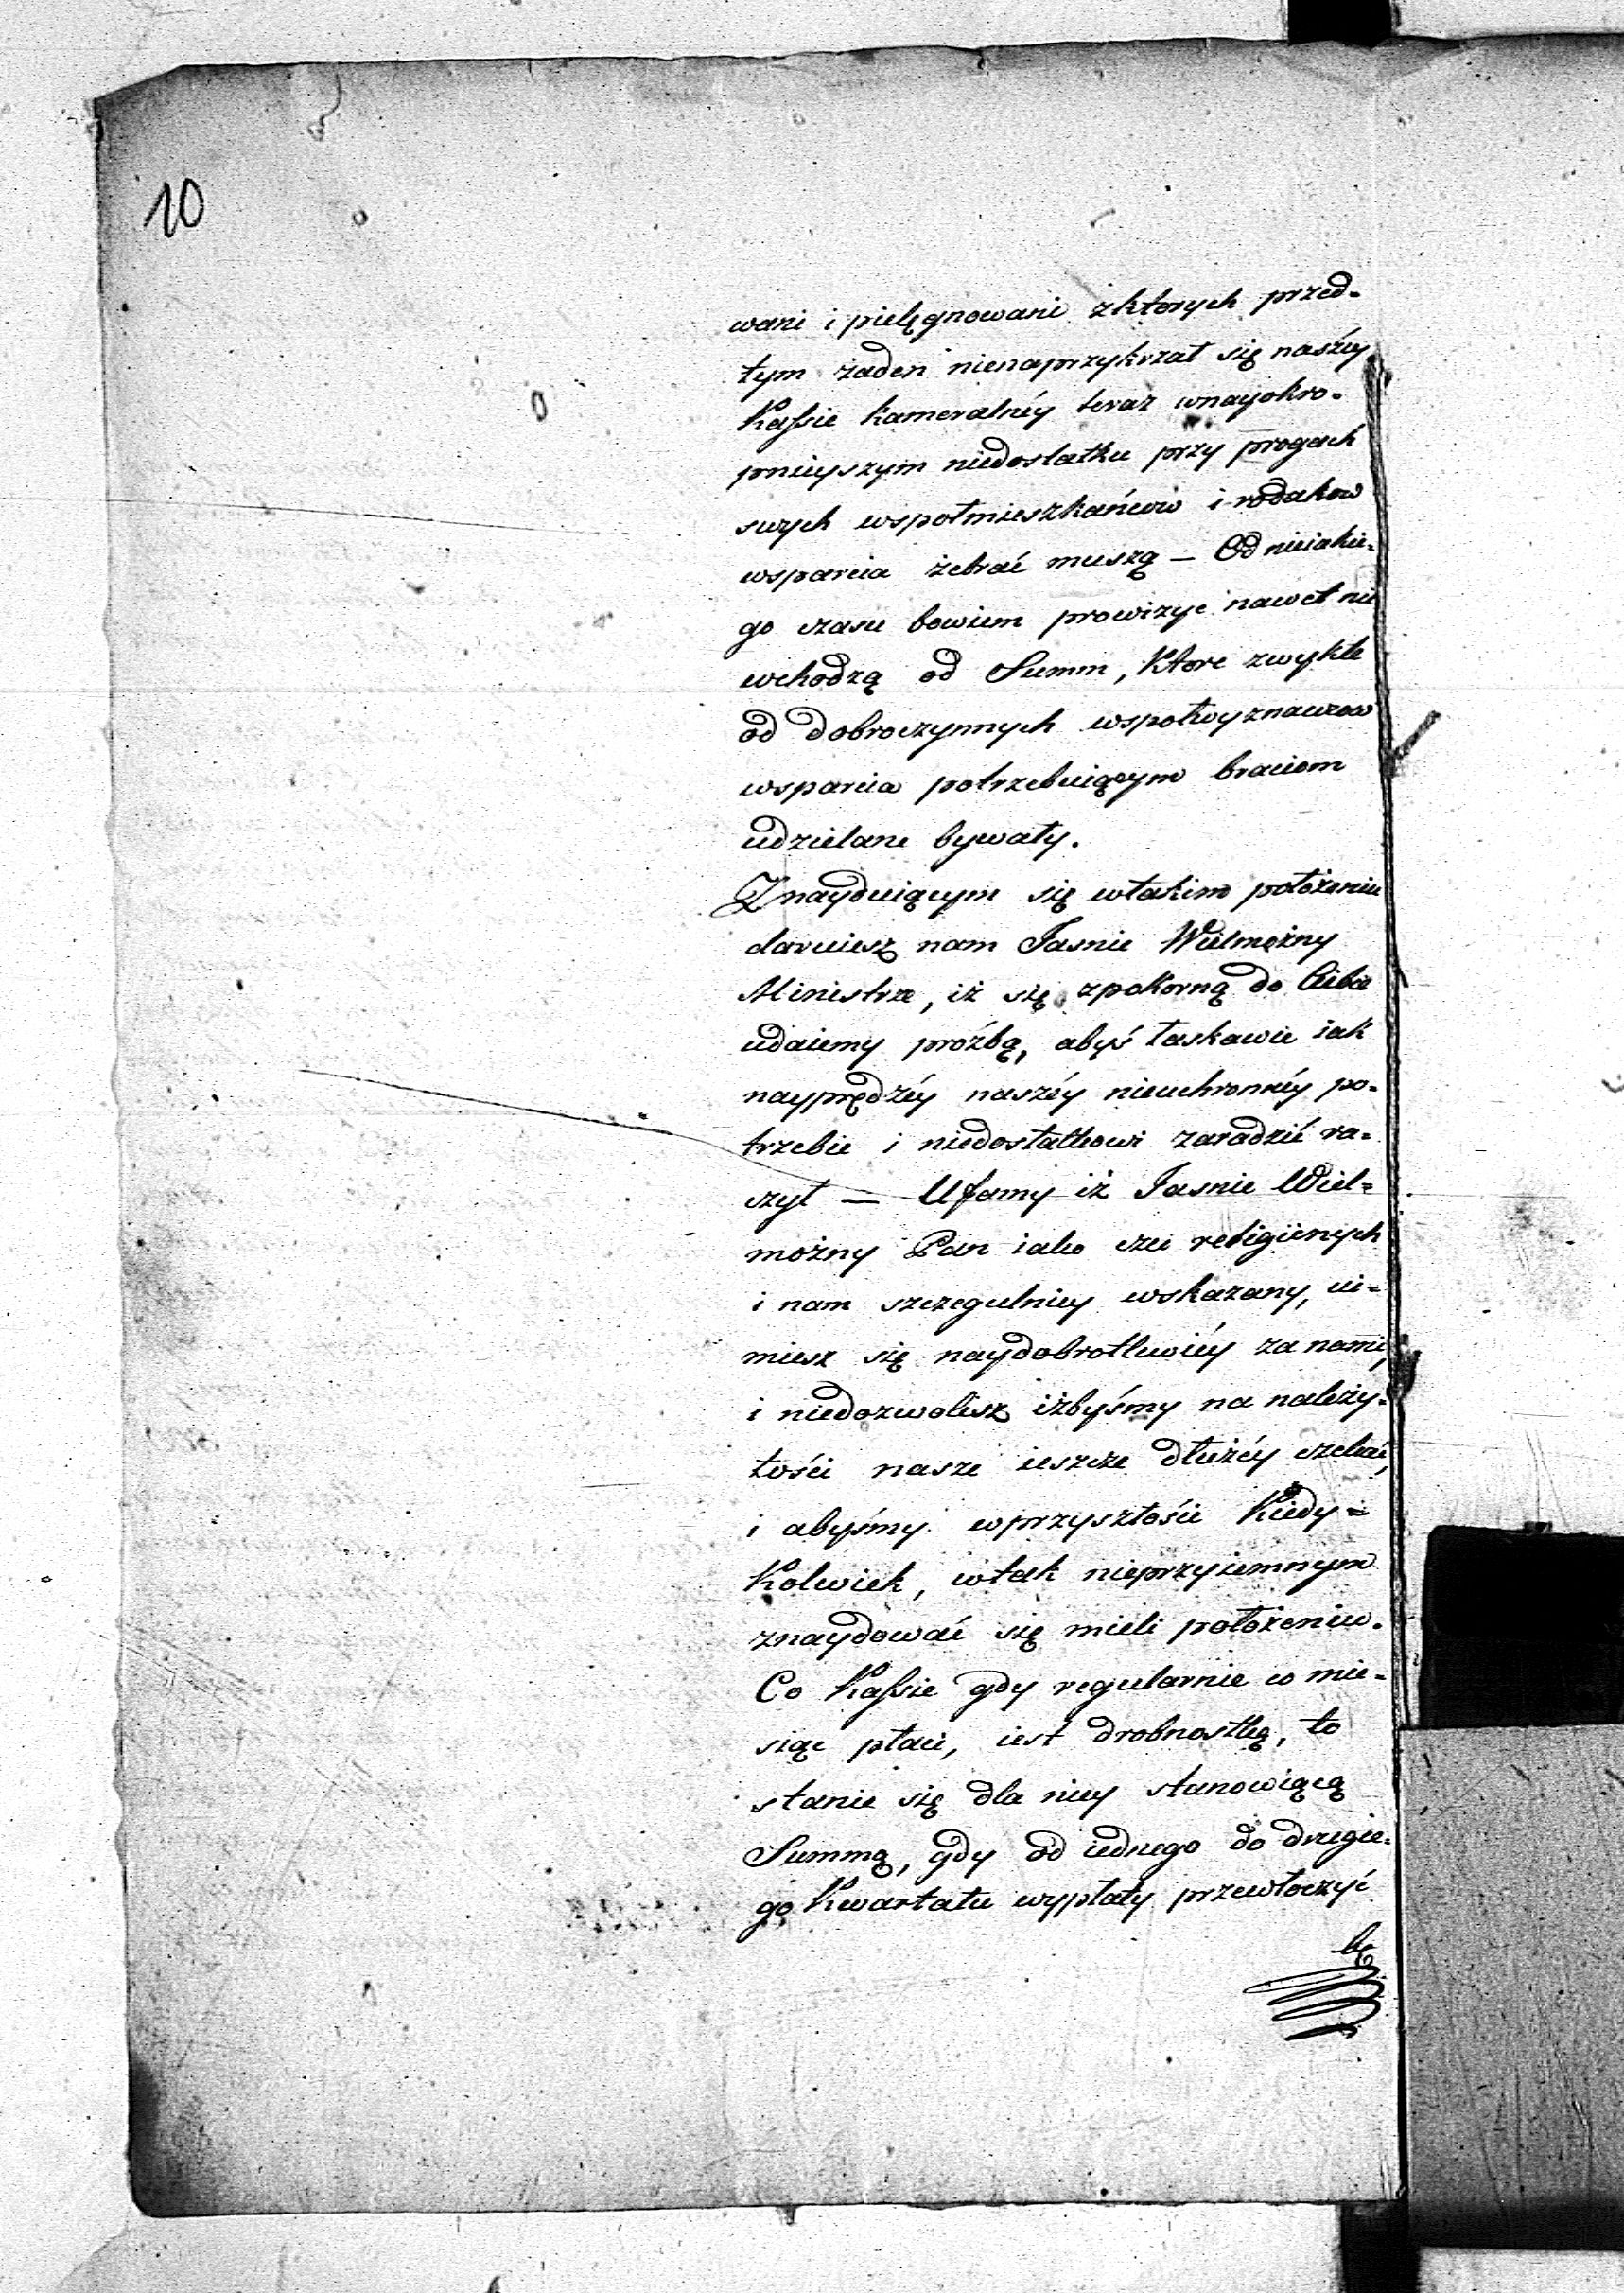 10
wani i pielęgnowani zktorych przed-
tym żaden nienaprzykrzał się naszéy
Kassie kameralnéy teraz wnayokro-
pnieyszym niedostatku przy progach
swych wspołmieszkańcow i rodakow
wsparcia żebrać muszą — Od nieiakie-
go czasu bowiem prowizye nawet nie
wchodzą od Summ, Ktore zwykle
od dobroczynnych wspołwyznawcow
wsparcia potrzebuiącym braciom
udzielane bywały.
Znayduiącym się wtakim położeniu
daruiesz nam Jasnie Wielmożny
Ministrze, iż się zpokorną do Ciebie
udaiemy prożbą, abyś łaskawie iak
nayprędzéy naszéy nieuchronnéy po-
trzebie i niedostatkowi zaradzić ra-
czył — Ufamy iż Jasnie Wiel-
możny Pan iako czci religiinych
i nam szczegulniey wskazany, ui-
miesz się naydobrotliwiéy za nami,
i niedozwolisz iżbyśmy na należy-
tości nasze ieszcze dłużéy czekać,
i abyśmy wprzyszłości Kiedy-
Kolwiek, wtak nieprzyiemnym
znaydować się mieli położeniu.
Co Kassie gdy regularnie co mie-
siąc płaci, iest drobnostką, to
stanie się dla niey stanowiącą
Summą, gdy od iednego do drugie-
go Kwartału wypłaty przewłoczyć
bę